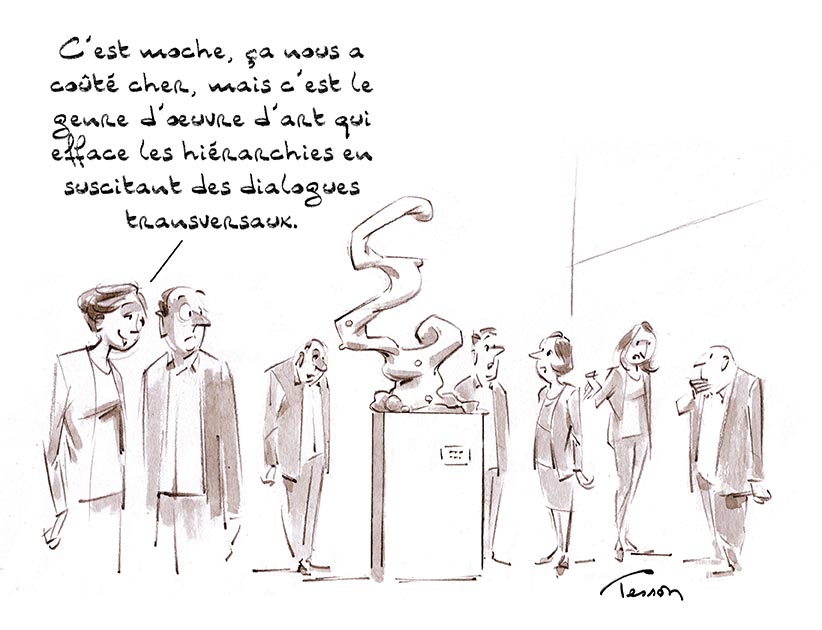 C'est moche, ça nous a
coûté cher, mais c'est le
genre d'œuvre d'art qui
efface les hiérarchies en
suscitant des dialogues
transversaux.
Tesson